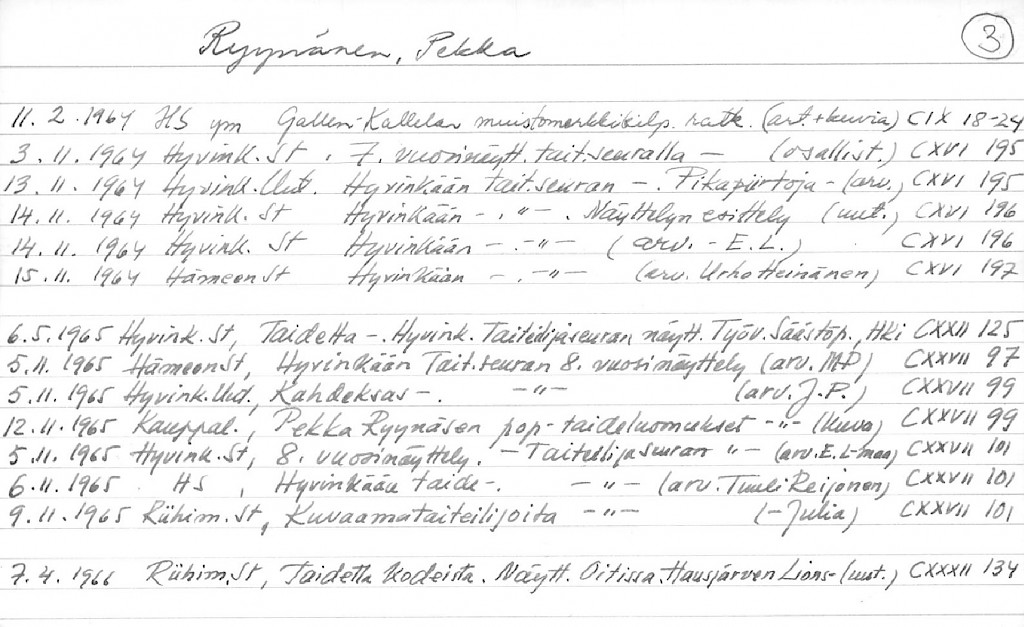 Ryynänen, Pekka
3
11. 2. 1964 HS ym Gallen-Kallelan muistomerkkikilp. ratk. (art.+kuvia) CIX 18-24
3. 11. 1964 Hyvink. St. 7. vuosinäytt. tait.seuralla — (osallist.) CXVI 195
13. 11. 1964 Hyvink. Uut. Hyvinkään tait.seuran —. Pikapiirtoja — (arv.) CXVI 195
14. 11. 1964 Hyvink. St Hyvinkään —. "—. Näyttelyn esittely (uut.) CXVI 196
14. 11. 1964 Hyvink. St Hyvinkään —. —"— (arv. - E.L.) CXVI 196
15. 11. 1964 Hämeen St Hyvinkään —. —"— (arv. Urho Heinänen) CXVI 197
6.5. 1965 Hyvink. St, Taidetta —. Hyvink. Taiteilijaseuran näytt. Työv. Säästöp., Hki CXXII 125
5.11. 1965 Hämeen St, Hyvinkään Tait.seuran 8. vuosinäyttely (arv. MP) CXXVII 97
5.11. 1965 Hyvink. Uud., Kahdeksas —. —"— (arv. J.P.) CXXVII 99
12.11. 1965 Kauppal., Pekka Ryynäsen pop-taideluomukset —"— (kuva) CXXVII 99
5.11. 1965 Hyvink. St, 8. vuosinäyttely. — Taiteilijaseuran "— (arv. E.L-maa) CXXVII 101
6.11. 1965 HS, Hyvinkään taide —. —"— (arv. Tuuli Reijonen) CXXVII 101
9.11. 1965 Riihim. St, Kuvaamataiteilijoita —"— (-Julia) CXXVII 101
7.4. 1966 Riihim. St, Taidetta kodeista. Näytt. Oitissa, Hausjärven Lions- (uut.) CXXXII 134